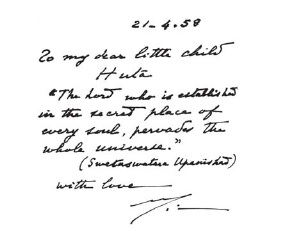 21-4.58
To my dear little child
Huta
"The Lord who is established
in the secret place of
every soul, pervades the
whole universe."
(Swetaswatera Upanishad)
with love